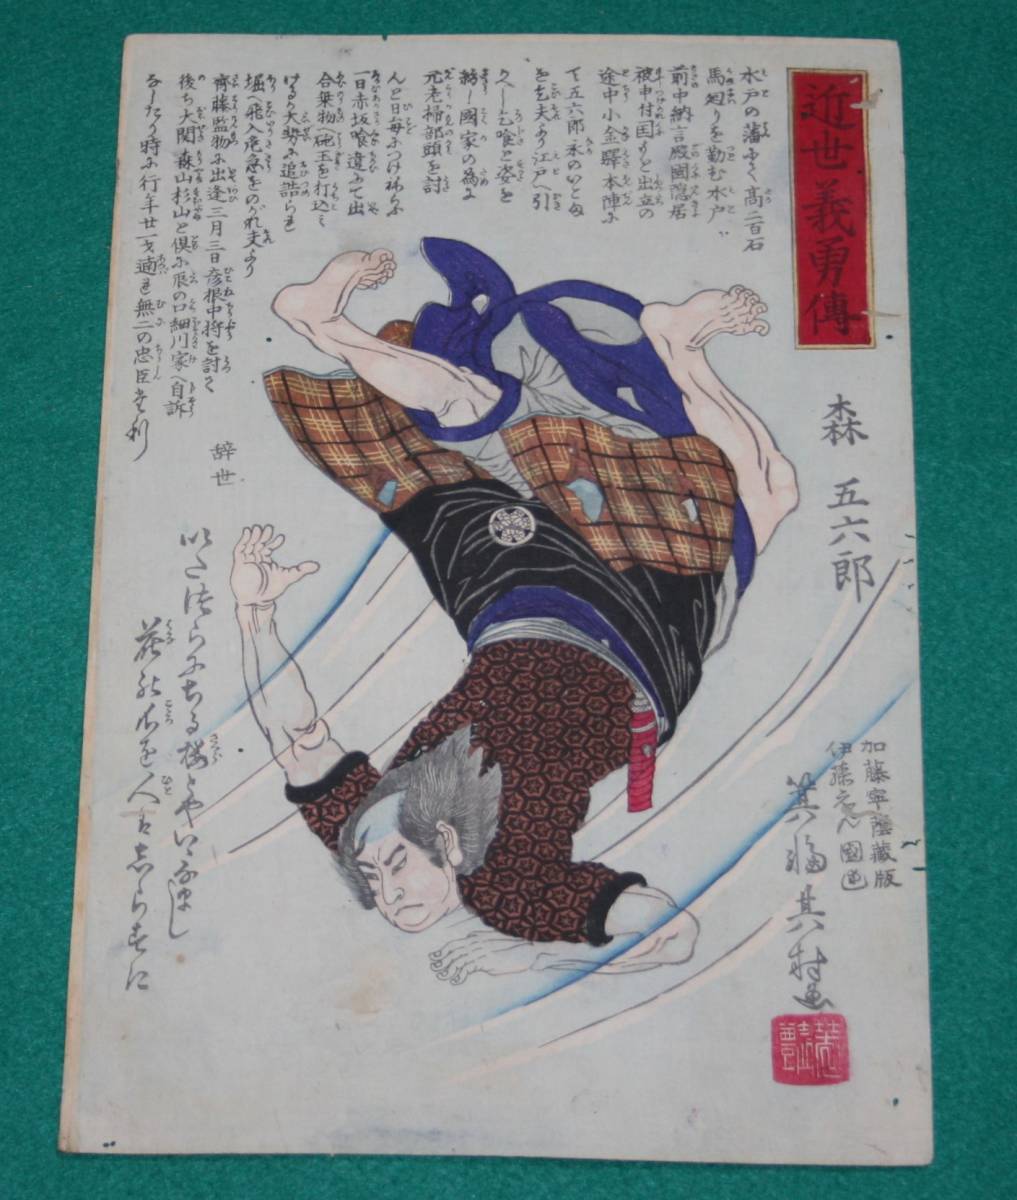 近世義勇傳
森五六郎
水戸の藩にて高二百石
馬廻りを勤む水戸
前中納言殿國隠居
被申付国もと出立の
途中小金驛本陣に
て五六郎永のいとま
を乞夫より江戸へ引
久しく乞喰と姿を
窶し國家の為に
元老掃部頭を討
んと日毎につけねらふ
一日赤坂喰違にて出
合乗物へ砲玉を打込
けるが大勢に追詰られ
堀へ飛入危急をのがれ夫より
齊藤監物に出逢三月三日彦根中将を討て
後ち大関森山杉山と倶に辰の口細川家へ自訴
なしたり時に行年廿一才適れ無二の忠臣
辞世
いたづらにちる桜とやいはなまし
花の心を人はしらずに
加藤寧蔭蔵版